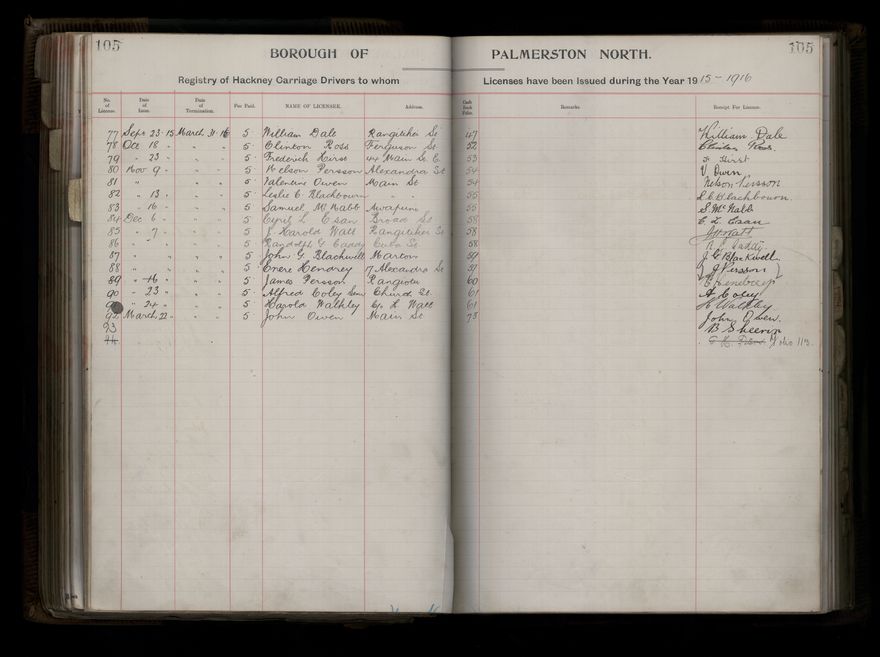 105
BOROUGH OF PALMERSTON NORTH.
105
Registry of Hackney Carriage Drivers to whom Licenses have been Issued during the Year 1915-1916
No. of License. Date of Issue. Date of Termination. Fee Paid. NAME OF LICENSEE. Address. Cash Book Folio. Remarks. Receipt For License.
77 Sept 23 · 15 March 31 · 16 5 William Dale Rangitikei St 47 William Dale
78 Oct 18 " " " 5 Clinton Ross Ferguson St 52 Clinton Ross.
79 " 23 " " " 5 Frederick Hirst 44 Main St E. 53 F Hirst
80 Nov 9 " " " 5 Nelson Persson Alexandra St 54 V Owen
81 " " " 5 Valentine Owen Main St 54 Nelson Persson
82 " 13 " " " 5 Leslie C. Blachbourn " " 55 L C Blachbourn.
83 " 16 " " " 5 Samuel McNabb Awapuni 55 S. McNabb
84 Dec 6 " " " 5 Cyril L Esau Broad St 58 C L Esau
85 " 7 " " " 5 J. Harold Watt Rangitikei St 58
86 " " " 5 Randolph G Caddy Cuba St 58 Caddy.
87 " " " 5 John G. Blackwell Marton 59 J G Blackwell
88 " " " 5 Hendrey 17 Alexandra St 59 J Persson
89 " 16 " " " 5 James Persson Rangiotu 60
90 " 23 " " " 5 Alfred Coley Senr Church St. 61 A Coley
" 24 " " " 5 Harold Walkley C/o H Watt 61 H Walkley
92 March 22 " 5 John Owen Main St 73 John Owen.
93 B Sheerin
folio 113.